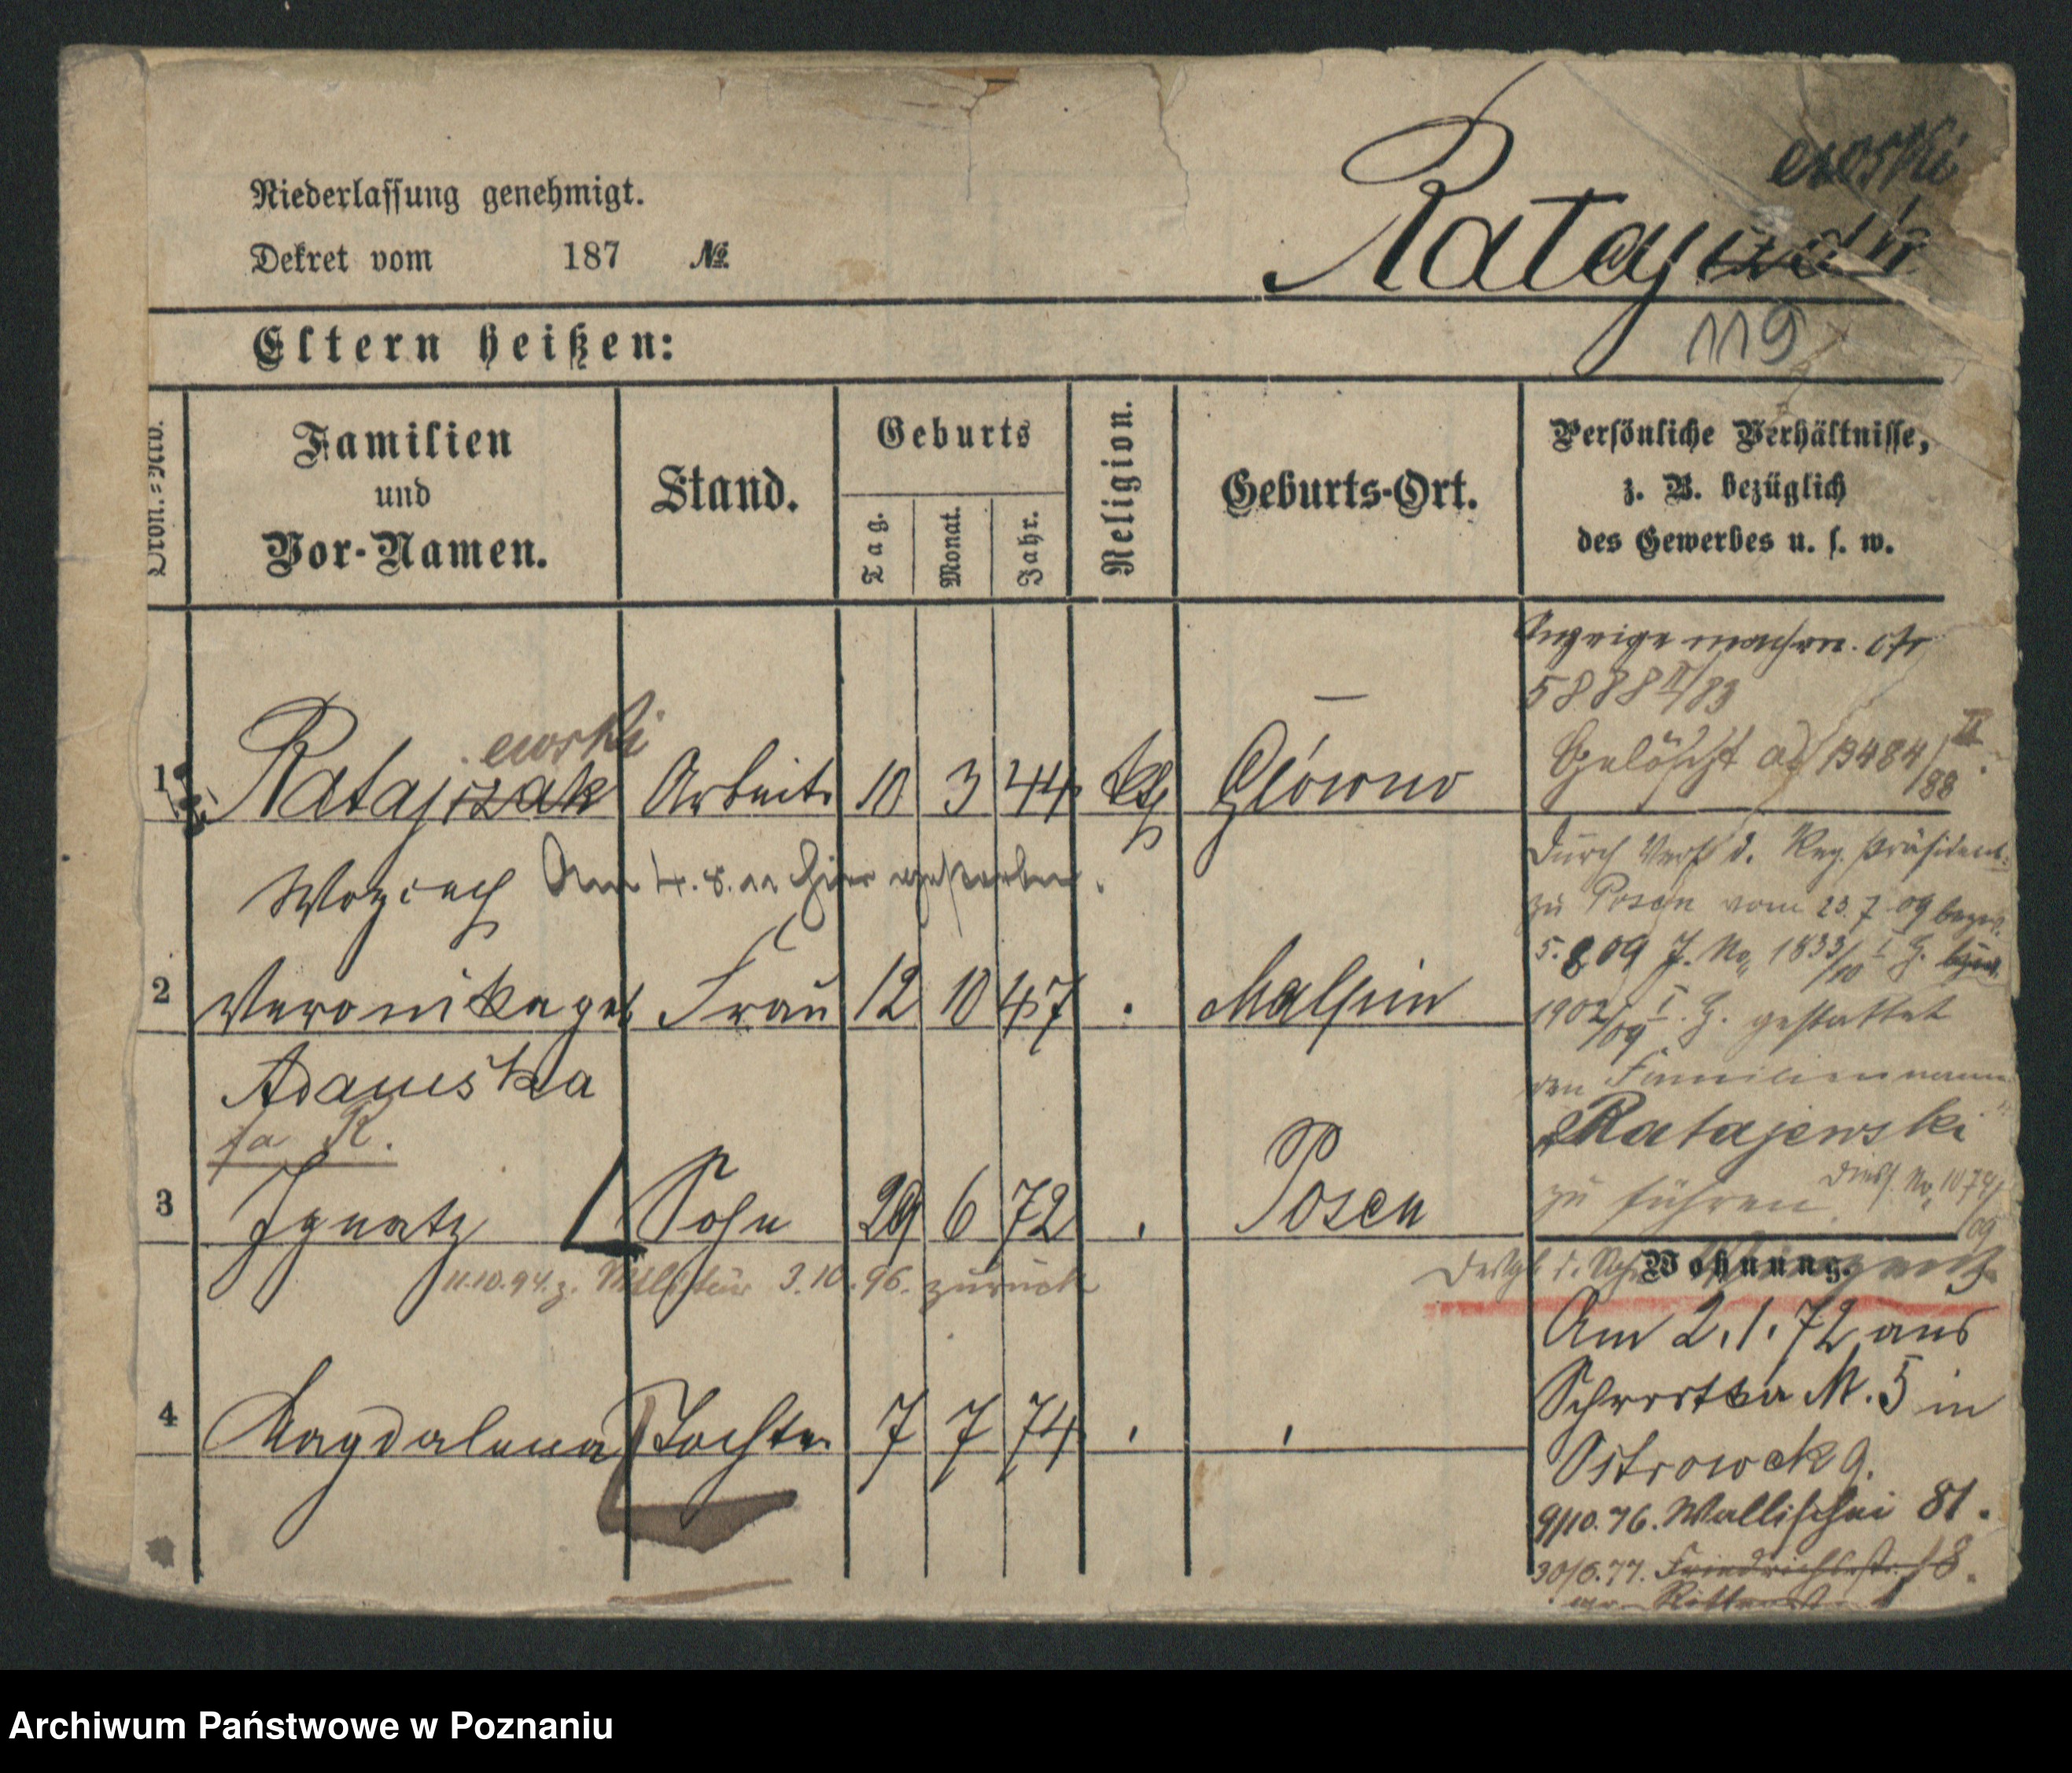 Niederlassung genehmigt.
Dekret vom 187 №
ewski
Ratajczak
119
Eltern heißen:
Ordn.=Nro.
Familien und Vor-Namen.
Stand.
Geburts
Tag.
Monat.
Jahr.
Religion.
Geburts-Ort.
Persönliche Verhältnisse,
z. B. bezüglich
des Gewerbes u. s. w.
Anzeige machen.
5888 II/83
Gelöscht ad 13484/88 II.
ewski
1 Ratajczak Arbeit. 10 3 44 kth Główno
Woyciech Am 4.8. hier gestorben.
2 Veronika geb Frau 12 10 47 Malpin
Adamska
fa R.
3 Ignatz Sohn 29 6 72 Posen
11.10.94. z. Militär 3.10.96. zurück
4 Magdalena Tochter 7 7 74
Durch Verf. d. Reg. Präsident.
zu Posen vom 23.7.09 bezw.
5.8.09 J. No. 1833/10 I G.
1902/09 I. G. gestattet
den Familiennamen
"Ratajewski"
zu führen.
Wohnung.
Am 2.1.72 aus
Schrodka M. 5 in
Ostrowek 9.
9/10.76. Wallischei 81.
30/6.77. Friedrichsstr. 18.
Archiwum Państwowe w Poznaniu